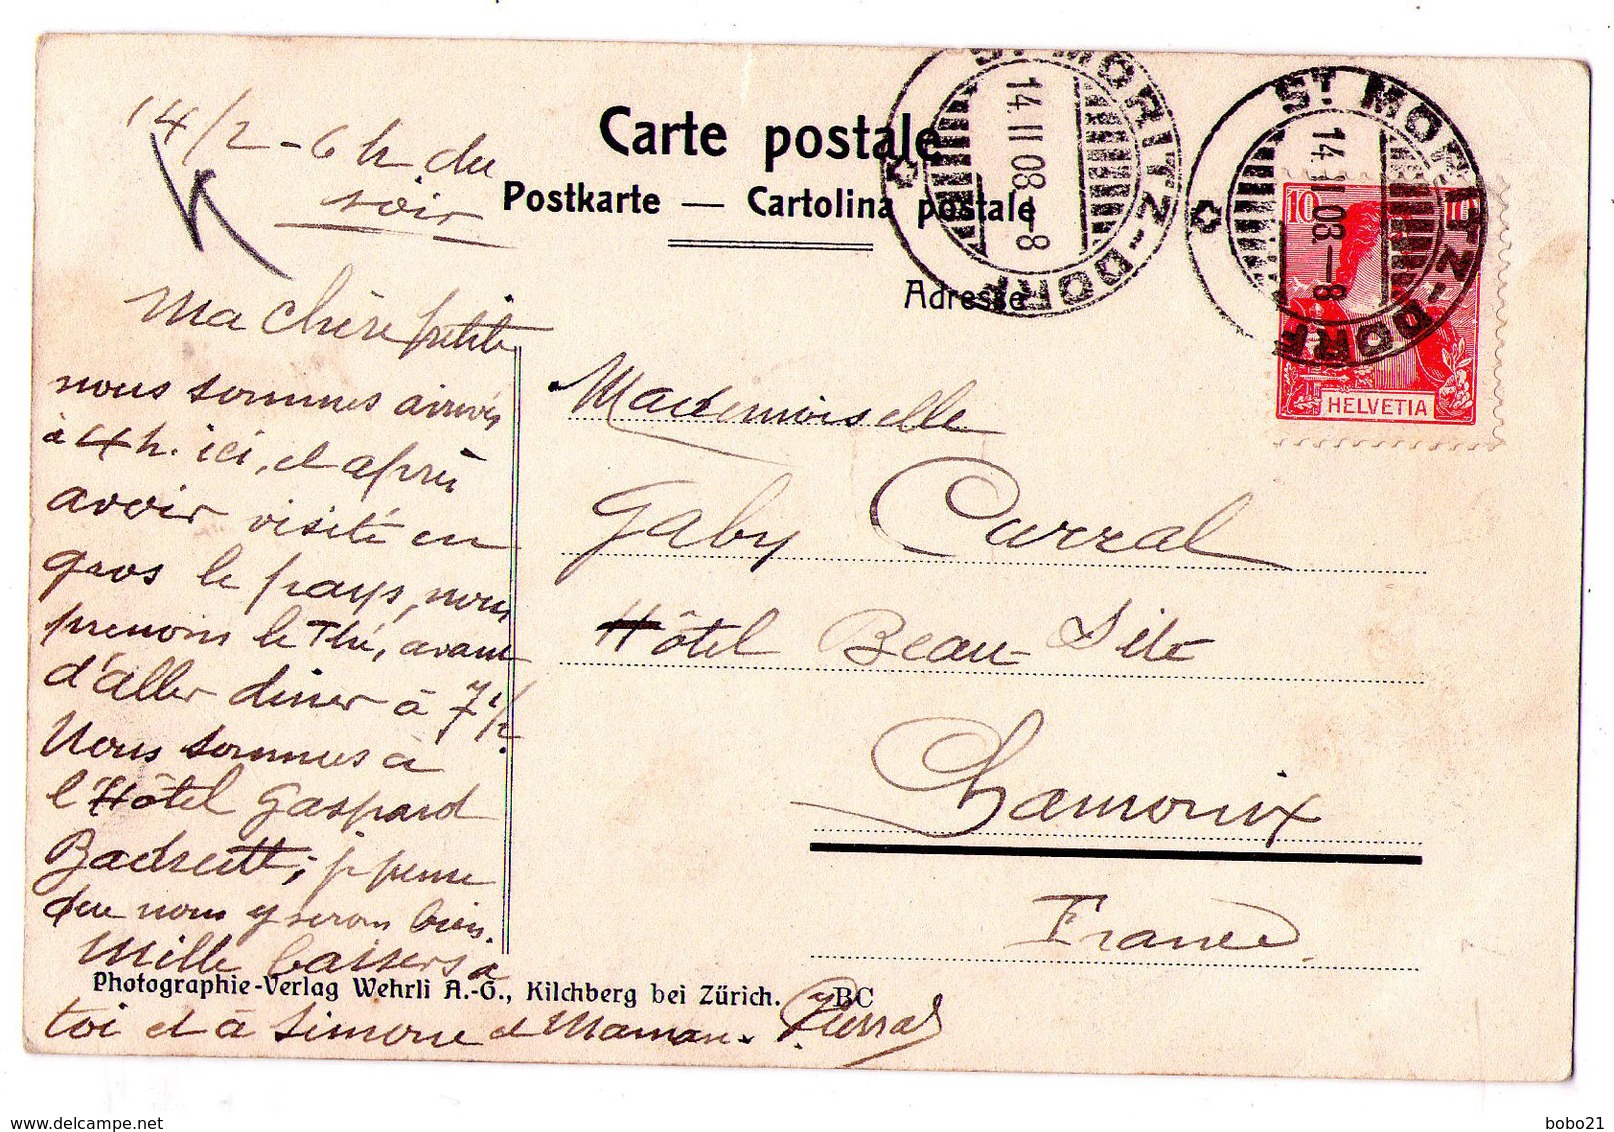 Carte postale
Postkarte — Cartolina postale
Adresse
ST MORITZ-DORF
14.II 08.—8
ST MORITZ-DORF
14.II 08.—8
10
HELVETIA
14/2 - 6 h du
soir
Ma chère petite
nous sommes arrivés
à 4 h. ici, et après
avoir visité en
gros le pays, nous
prenons le Thé, avant
d'aller diner à 7 1/2.
Nous sommes à
l'Hôtel Gaspard
Badrutt; je pense
que nous y serons bien.
Mille baisers à
toi et à Simone et Maman.
Mademoiselle
Gaby Curral
Hôtel Beau-Site
Chamonix
France.
Photographie-Verlag Wehrli A.-G., Kilchberg bei Zürich.
BC
bobo21